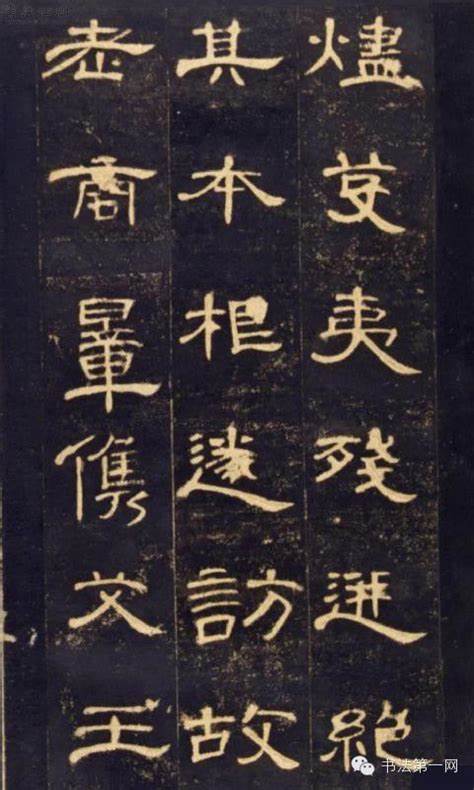 燼芟夷殘迸絕
其本根遂訪故
老商量儁艾王
书法第一网